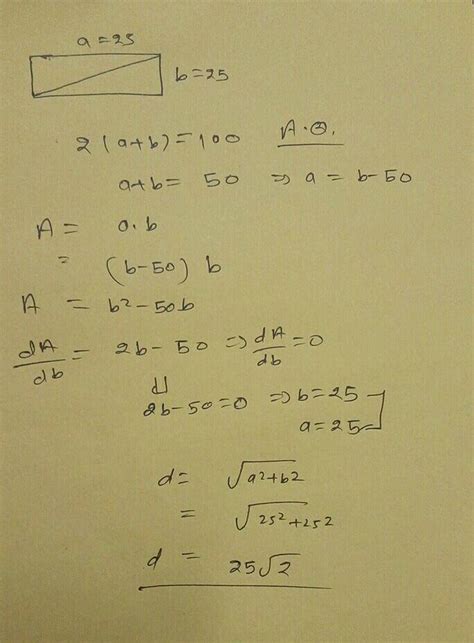 a=25
b=25
2(a+b)=100 A.②.
a+b= 50 ⇒ a = b-50
A = a.b
= (b-50) b
A = b²-50b
dA/db = 2b-50 ⇒ dA/db =0
2b-50=0 ⇒ b=25
a=25
d= √a²+b²
= √25²+25²
d = 25√2